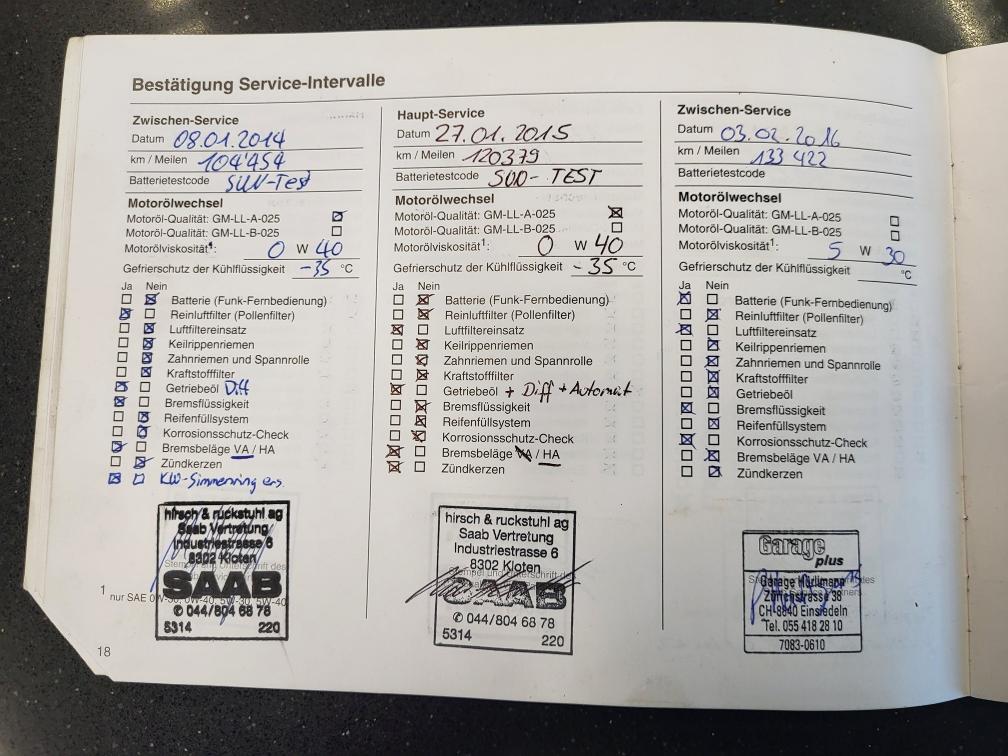 Bestätigung Service-Intervalle
Zwischen-Service
Datum 08.01.2014
km / Meilen 104'454
Batterietestcode SUN-Test
Motorölwechsel
Motoröl-Qualität: GM-LL-A-025
Motoröl-Qualität: GM-LL-B-025
Motorölviskosität¹: 0 W 40
Gefrierschutz der Kühlflüssigkeit -35 °C
Ja Nein
Batterie (Funk-Fernbedienung)
Reinluftfilter (Pollenfilter)
Luftfiltereinsatz
Keilrippenriemen
Zahnriemen und Spannrolle
Kraftstofffilter
Getriebeöl Diff
Bremsflüssigkeit
Reifenfüllsystem
Korrosionsschutz-Check
Bremsbeläge VA / HA
Zündkerzen
KW-Simmerring ers.
hirsch & ruckstuhl ag
Saab Vertretung
Industriestrasse 6
8302 Kloten
SAAB
✆ 044/804 68 78
5314 220
1 nur SAE 0W-30, 0W-40, 5W-30, 5W-40
18
Haupt-Service
Datum 27.01.2015
km / Meilen 120379
Batterietestcode SUN-TEST
Motoröl-Qualität: GM-LL-A-025
Motoröl-Qualität: GM-LL-B-025
Motorölviskosität¹: 0 W 40
Gefrierschutz der Kühlflüssigkeit -35 °C
Ja Nein
Batterie (Funk-Fernbedienung)
Reinluftfilter (Pollenfilter)
Luftfiltereinsatz
Keilrippenriemen
Zahnriemen und Spannrolle
Kraftstofffilter
Getriebeöl + Diff + Automat
Bremsflüssigkeit
Reifenfüllsystem
Korrosionsschutz-Check
Bremsbeläge VA / HA
Zündkerzen
hirsch & ruckstuhl ag
Saab Vertretung
Industriestrasse 6
8302 Kloten
SAAB
✆ 044/804 68 78
5314 220
Zwischen-Service
Datum 03.02.2016
km / Meilen 133 422
Batterietestcode
Motorölwechsel
Motoröl-Qualität: GM-LL-A-025
Motoröl-Qualität: GM-LL-B-025
Motorölviskosität¹: 5 W 30
Gefrierschutz der Kühlflüssigkeit °C
Ja Nein
Batterie (Funk-Fernbedienung)
Reinluftfilter (Pollenfilter)
Luftfiltereinsatz
Keilrippenriemen
Zahnriemen und Spannrolle
Kraftstofffilter
Getriebeöl
Bremsflüssigkeit
Reifenfüllsystem
Korrosionsschutz-Check
Bremsbeläge VA / HA
Zündkerzen
Garage
plus
Garage
Zürichstrasse 38
CH-8840 Einsiedeln
Tel. 055 418 28 10
7083-0610